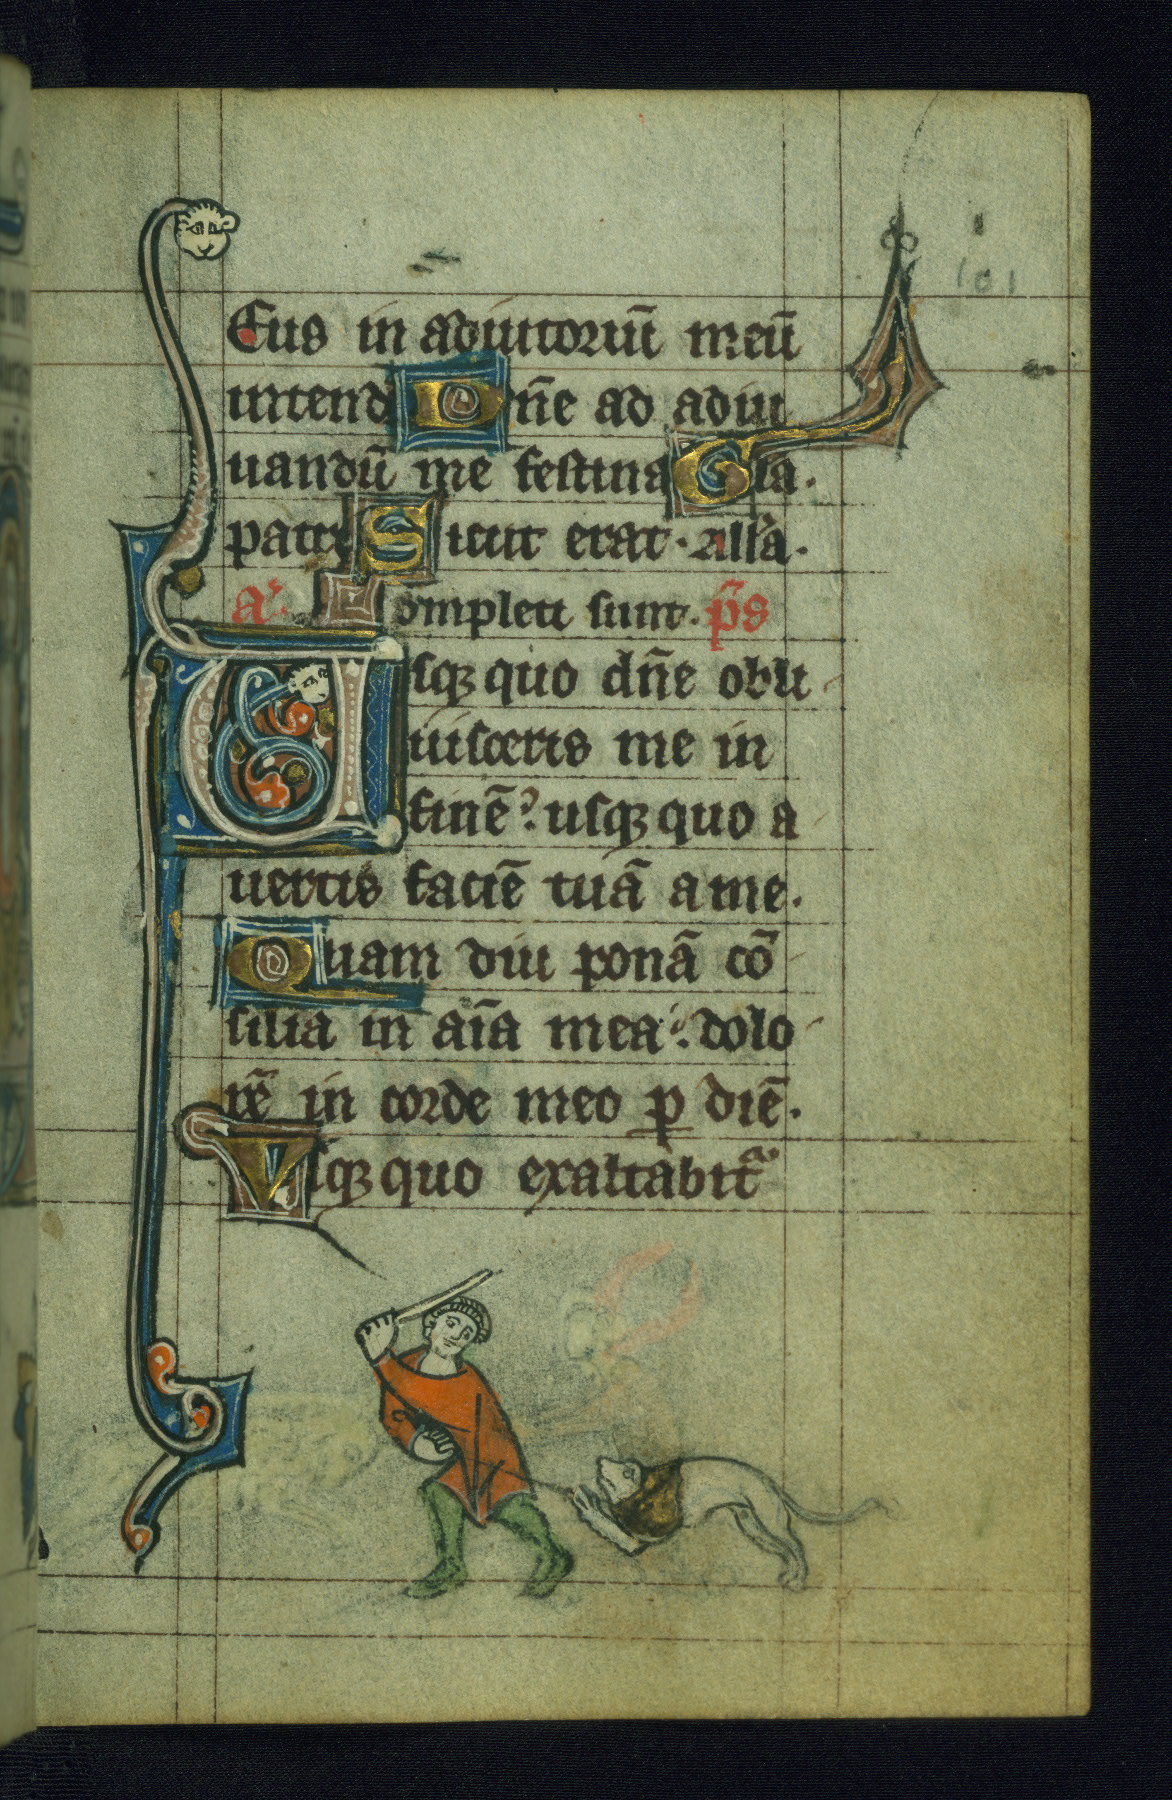 101
Eus in adiutoriū meū
intend Dn̄e ad adiu
uandū me festina Gl̄a.
patri Sicut erat. all'a.
aͬ. Completi sunt. p̄s
Usqꝫ quo dn̄e obli
uisceris me in
finē? usqꝫ quo a
uertis faciē tuā a me.
Quam diu ponā cō
silia in aīa mea: dolo
rē in corde meo ꝑ diē.
Vsqꝫ quo exaltabit̄